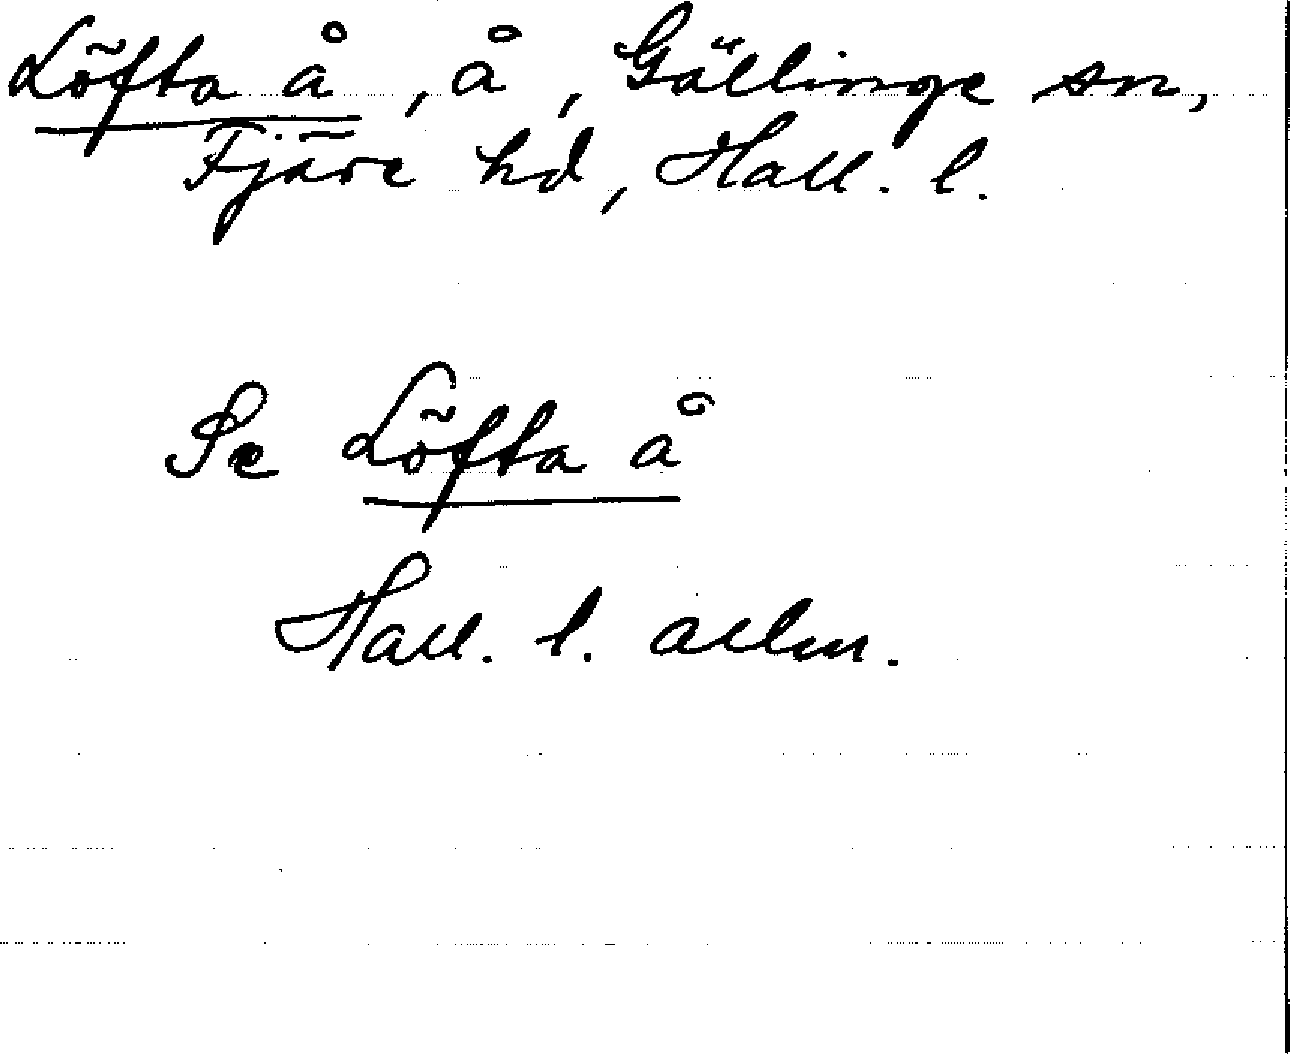 Löfta å, å, Gällinge sn,
Fjäre hd, Hall. l.
Se Löfta å
Hall. l. allm.